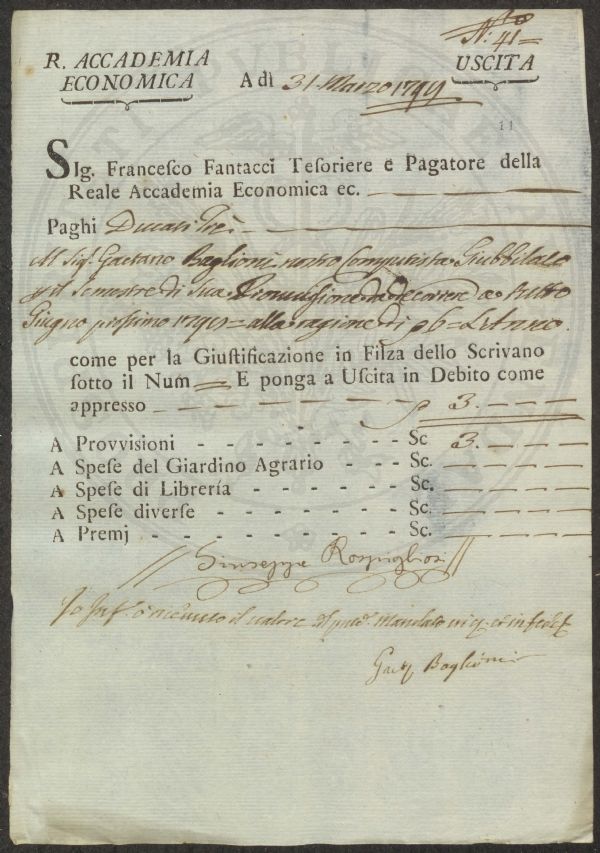 N.° 41
R. ACCADEMIA
ECONOMICA
A dì 31. Marzo 1799
USCITA
11
SIg. Franceſco Fantacci Teſoriere e Pagatore della
Reale Accademia Economica ec.
Paghi Ducati Tre
Al Sig.r Gaetano Baglioni nostro Computista Giubbilato
p il Semestre di Sua Provvisione da decorrere a tutto
Giugno prossimo 1799 = alla ragione di 6 = L'Anno.
come per la Giuſtificazione in Filza dello Scrivano
ſotto il Num E ponga a Uſcita in Debito come
appreſſo 3. — — —
A Provviſioni - - - - - - - - Sc 3. — — —
A Speſe del Giardino Agrario - - - Sc. — — — —
A Speſe di Librería - - - - - - Sc. — — — —
A Speſe diverſe - - - - - - - Sc. — — — —
A Premj - - - - - - - - - Sc. — — — —
Giuseppe Rospigliosi
Io Inf.o ò ricevuto il valore del pnte. Mandato in fede
Gaet.o Baglioni